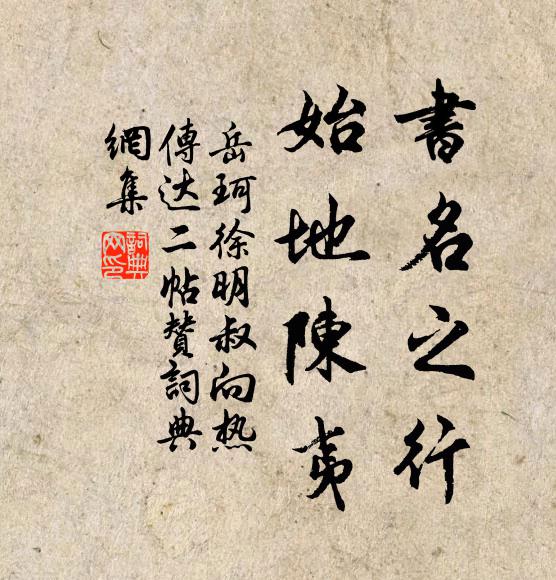 書名之行
始地陳夷
岳珂徐明叔向热
傳达二帖贊詞典
網集
詞典
网印